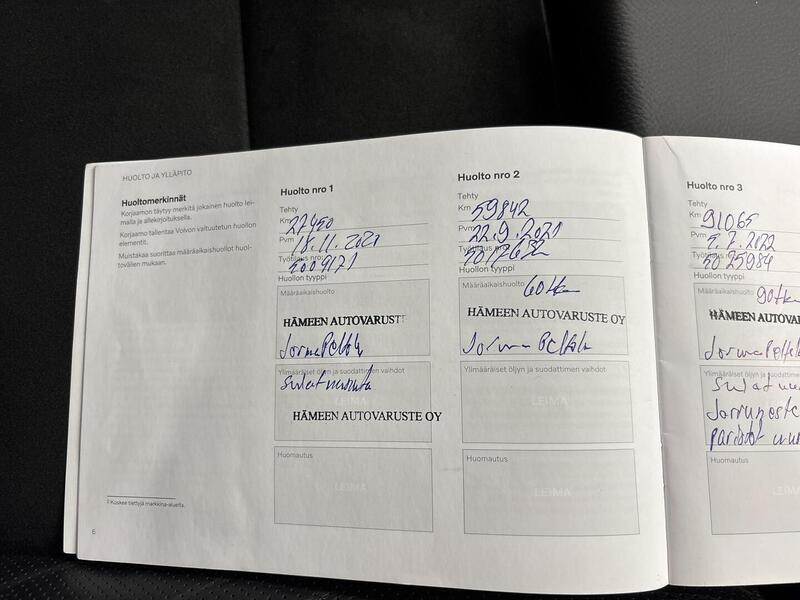 HUOLTO JA YLLÄPITO
Huoltomerkinnät
Korjaamon täytyy merkitä jokainen huolto lei-
malla ja allekirjoituksella.
Korjaamo tallentaa Volvon valtuutetun huollon
elementit.
Muistakaa suorittaa määräaikaishuollot huol-
tovälien mukaan.
2 Koskee tiettyjä markkina-alueita.
6
Huolto nro 1
Tehty
Km 27450
Pvm 18.11.2020
Työtilaus nro
Huollon tyyppi
Määräaikaishuolto
HÄMEEN AUTOVARUST
Jorma Peltola
HÄMEEN AUTOVARUSTE OY
Huomautus
LEIMA
Huolto nro 2
Tehty
Km 59842
Pvm 22.9.2021
Työtilaus nro
Huollon tyyppi
Määräaikaishuolto 60tkm
HÄMEEN AUTOVARUSTE OY
Jorma Peltola
Ylimääräiset öljyn ja suodattimen vaihdot
LEIMA
Huomautus
LEIMA
Huolto nro 3
Tehty
Km 91065
Pvm 5.7.2022
Työtilaus nro 5025984
Huollon tyyppi
Määräaikaishuolto 90tkm
HÄMEEN AUTOVARUS
Jorma Peltola
Huomautus